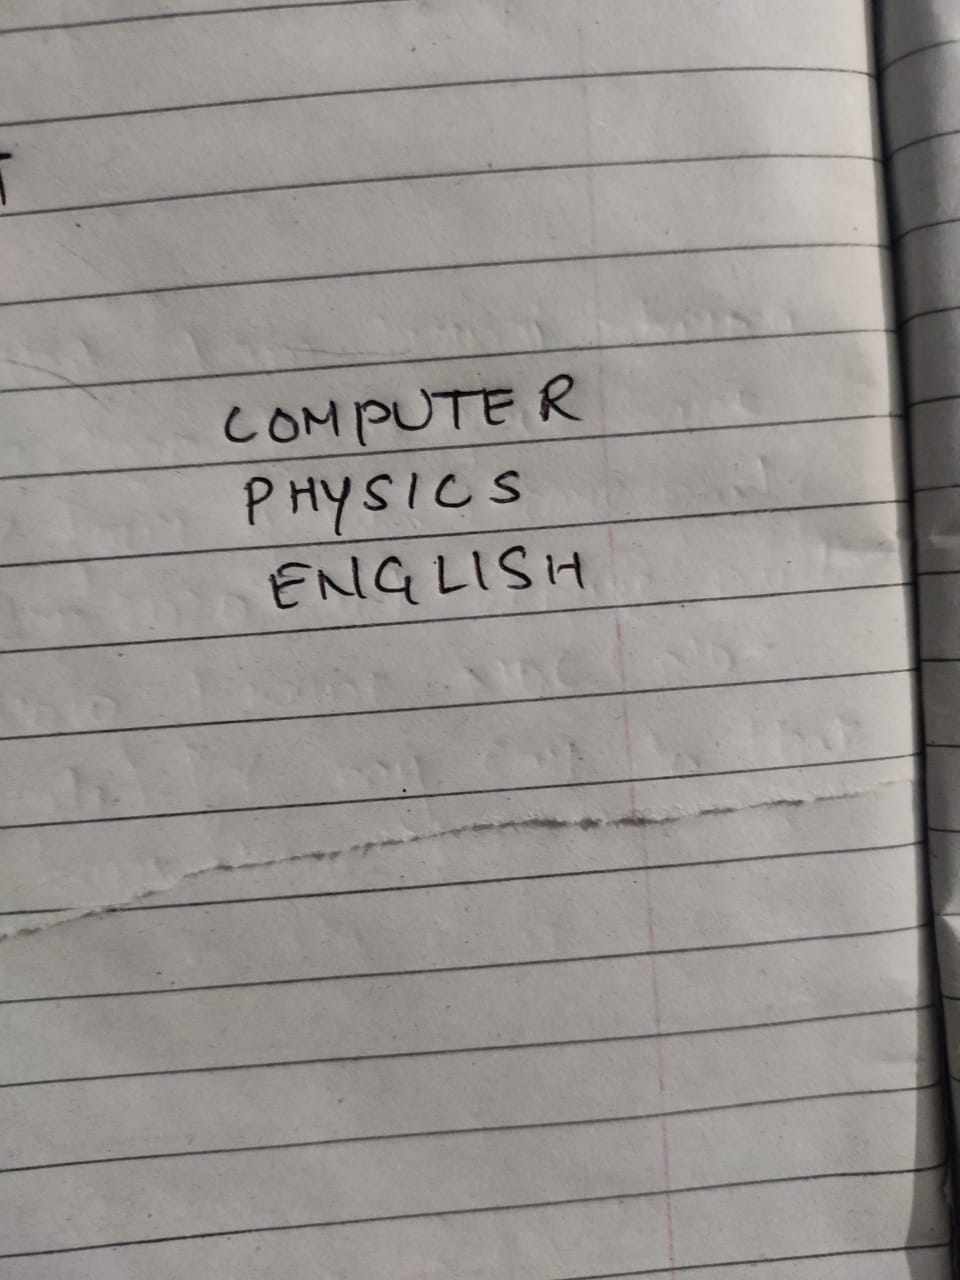 COMPUTER
PHYSICS
ENGLISH